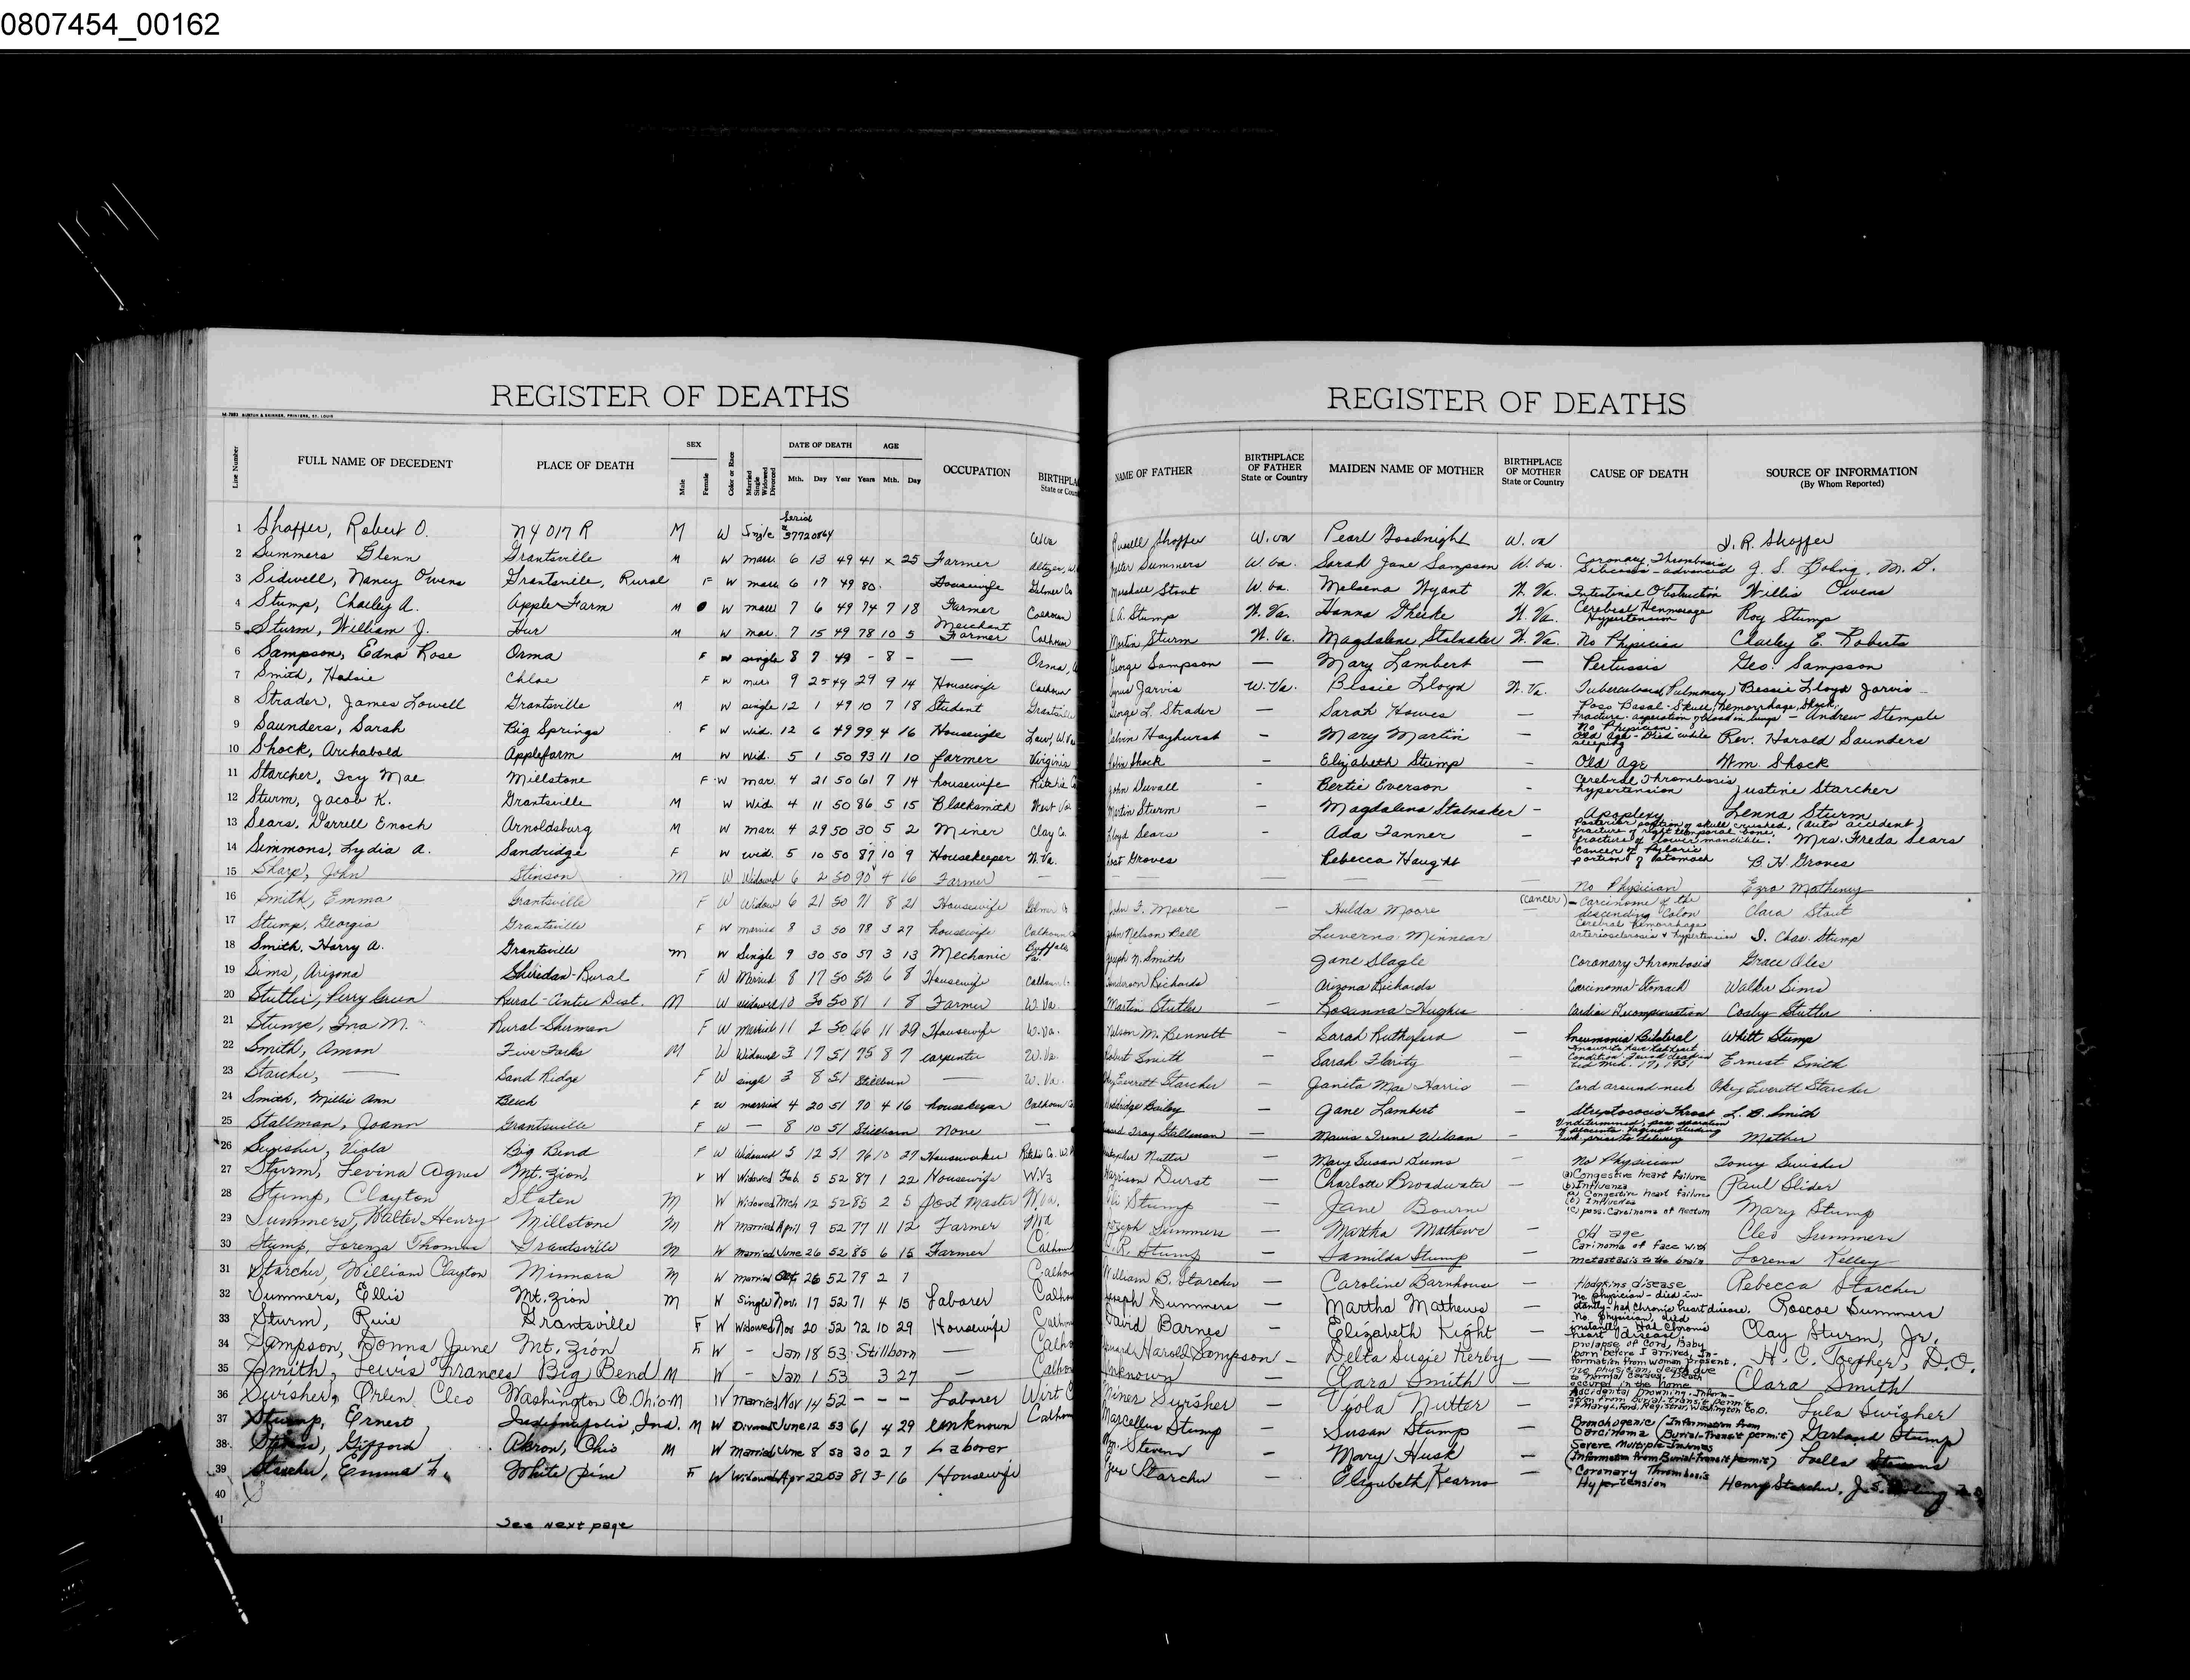 0807454_00162
REGISTER OF DEATHS
REGISTER OF DEATHS
Line Number FULL NAME OF DECEDENT PLACE OF DEATH SEX Male Female Color or Race Married Single Widowed Divorced DATE OF DEATH Mth. Day Year AGE Years Mth. Day OCCUPATION BIRTHPLA State or Coun NAME OF FATHER BIRTHPLACE OF FATHER State or Country MAIDEN NAME OF MOTHER BIRTHPLACE OF MOTHER State or Country CAUSE OF DEATH SOURCE OF INFORMATION (By Whom Reported)
1 Shaffer, Robert O. N4017R M W Single Serial # 37720864 W.Va Russell Shaffer W.va Pearl Goodnight W.va Shaffer
2 Summers Glenn Grantsville M W marr. 6 13 49 41 x 25 Farmer Altizer, W. Peter Summers W.Va. Sarah Jane Sampson W.Va. Coronary Thrombosis Silicosis - advanced M.D.
3 Sidwell, Nancy Owens Grantsville, Rural F W marr. 6 17 49 80 Housewife Gilmer Co Marshall Stout W.Va. Nyant W.Va. Intestinal Obstruction Willis Owens
4 Stump, Charley A. Apple Farm M W marr 7 6 49 74 7 18 Farmer Calhoun A. Stump W.Va. Hanna W.Va. Cerebral Hemmorage Hypertension Roy Stump
5 Sturm, William J. Hur M W mar. 7 15 49 78 10 5 Merchant Farmer Calhoun Martin Sturm W.Va. Magdalene Stalnaker W.Va. No Physician Charley E. Roberts
6 Sampson, Edna Rose Orma F W single 8 7 49 - 8 - — Orma, George Sampson — Mary Lambert — Pertussis Geo. Sampson
7 Smith, Chloe F W marr 9 25 49 29 9 14 Housewife Calhoun Jarvis W.Va. Bessie Lloyd W.Va. Tuberculosis (Pulmonary) Bessie Lloyd Jarvis
8 Strader, James Lowell Grantsville M W single 12 1 49 10 7 18 Student Grantsville George L. Strader — Sarah Howes — Poss Basal-Skull, hemorrhage, Shock, Fracture - aspiration of blood in lungs - Andrew Stemple
9 Saunders, Sarah Big Springs F W wid. 12 6 49 99 4 16 Housewife Law, W.Va Calvin Hayhurst — Mary Martin — No Physician - Old Age - Died while sleeping Rev. Harold Saunders
10 Shock, Archabold Applefarm M W wid. 5 1 50 93 11 10 farmer Virginia Shock — Elizabeth Stump — Old Age Wm. Shock
11 Starcher, Icy Mae Millstone F W mar. 4 21 50 61 7 14 housewife Ritchie C John Duvall - Bertie Everson - Cerebral Thrombosis hypertension Justine Starcher
12 Sturm, Jacob K. Grantsville M W Wid. 4 11 50 86 5 15 Blacksmith West Va Martin Sturm - Magdalena Stalnaker - Apoplexy Lenna Sturm
13 Sears, Darrell Enoch Arnoldsburg M W marr 4 29 50 30 5 2 Miner Clay Co. Lloyd Sears — Ada Tanner — Posterior portion of skull crushed, (auto accident) fracture of right temporal bone, fracture of lower mandible. Mrs. Freda Sears
14 Simmons, Lydia A. Sandridge F W wid. 5 10 50 87 10 9 Housekeeper W.Va. Groves Rebecca Haught Cancer of Pyloric portion of stomach B. H. Groves
15 Sharp, John Stinson M W Widowed 6 2 50 90 4 16 Farmer — — — — — No Physician Ezra Matheny
16 Smith, Emma Grantsville F W Widow 6 21 50 71 8 21 Housewife Gilmer Co John F. Moore — Hulda Moore (cancer) - Carcinoma of the descending Colon Clara Stout
17 Stump, Georgia Grantsville F W married 8 3 50 78 3 27 housewife Calhoun John Nelson Bell Luverna Minnear Cerebral hemorrhage arteriosclerosis & hypertension I. Chas. Stump
18 Smith, Harry A. Grantsville M W Single 9 30 50 57 3 13 Mechanic Buffalo Pa. Joseph N. Smith Jane Slagle Coronary Thrombosis Grace Oles
19 Sims, Arizona Sheridan-Rural F W Married 8 17 50 50 6 8 Housewife Calhoun Anderson Richards Arizona Richards Carcinoma Stomach Walter Sims
20 Stutler, Perry Green Rural-Center Dist. M W widowed 10 30 50 81 1 8 Farmer W.Va Martin Stutler — Rosanna Hughes — Cardiac Decompensation Cosby Stutler
21 Stump, Ina M. Rural-Sherman F W Married 11 2 50 66 11 29 Housewife W.Va. Nelson M. Bennett — Sarah Rutherford — Pneumonia Bilateral Whitt Stump
22 Smith, Amon Five Forks M W Widowed 3 17 51 75 8 7 carpenter W.Va. Robert Smith — Sarah — Known to have bad heart condition. Found dead in bed Mch. 17, 1951 Ernest Smith
23 Starcher, — Sand Ridge F W single 3 8 51 Stillborn — W.Va. Okey Everett Starcher — Janita Mae Harris — Cord around neck Okey Everett Starcher
24 Smith, Millie Ann Beech F W married 4 20 51 70 4 16 housekeeper Calhoun Co Bailey — Jane Lambert — Streptococic Throat L. B. Smith
25 Stallman, Joann Grantsville F W — 8 10 51 Stillborn None — Troy Stallman — Mavis Irene Wilson — Undetermined, poss separation of placenta. Vaginal bleeding prior to delivery Mother
26 Swisher, Viola Big Bend F W Widowed 5 12 51 76 10 27 Houseworker Ritchie Co. W.V Nutter — Mary Susan Dums — No Physician Toney Swisher
27 Sturm, Levina Agnes Mt. Zion, F W Widowed Feb. 5 52 87 1 22 Housewife W.Va Harrison Durst — Charlotte Broadwater — (a) Congestive heart failure (b) Influenza Paul Slider
28 Stump, Clayton Staten M W Widowed Mch 12 52 85 2 5 Post Master W.Va. Stump — Jane Bourn (a) Congestive heart failure (b) Influenza (c) poss. Carcinoma of Rectum Mary Stump
29 Summers, Walter Henry Millstone M W Married April 9 52 77 11 12 Farmer Joseph Summers — Martha Mathews — Old age Cleo Summers
30 Stump, Lorenza Thomas Grantsville M W married June 26 52 85 6 15 Farmer Calhoun R. Stump — Tamilda Stump — Carinoma of face with metastasis to the brain Lorena Kelley
31 Starcher, William Clayton Minnora M W married 26 52 79 2 1 Calhou William B. Starcher — Caroline Barnhouse — Hodgkins disease Rebecca Starcher
32 Summers, Ellis Mt. Zion M W Single Nov. 17 52 71 4 15 Laborer Calhou Joseph Summers — Martha Mathews — No physician - died instantly - had Chronic heart disease. Roscoe Summers
33 Sturm, Ruie Grantsville F W Widowed Nov 20 52 72 10 29 Housewife Calhou David Barnes — Elizabeth Kight — No. physician, died instantly - Had Chronic heart disease. Clay Sturm, Jr.
34 Sampson, Donna June Mt. Zion F W - Jan 18 53 Stillborn — Calho Harold Sampson — Delta Susie Kerby — prolapse of Cord, Baby born before I arrived, Information from woman present. H. C. Toepher, D.O.
35 Smith, Lewis Frances Big Bend M W - Jan 1 53 3 27 — Calhou Unknown — Clara Smith — no physician, death due to normal causes. Death occured in the home Clara Smith
36 Swisher, Orlen Cleo Washington Co. Ohio M W Married Nov 14 52 - - Laborer Wirt C Miner Swisher — Viola Nutter — Accidental Drowning. Information from burial-transit permit of Mary L. Ford, Registrar, Washington Co. O. Lula Swisher
37 Stump, Ernest Indianapolis, Ind. M W Divorced June 12 53 61 4 29 Unknown Calhou Marcellus Stump — Susan Stump — Bronchogenic Carcinoma (Information from Burial-Transit permit) Garland Stump
38 Gifford Akron, Ohio M W Married June 8 53 30 2 7 Laborer Wm. Stevens — Mary Husk — Severe Multiple Injuries (Information From Burial-Transit permit) Luella Stevens
39 Starcher, Emma F. White Pine F W Widowed Apr 22 53 81 3 16 Housewife Starcher — Elizabeth Kearns — Coronary Thrombosis Hypertension Henry Starcher,
40
41 See next page